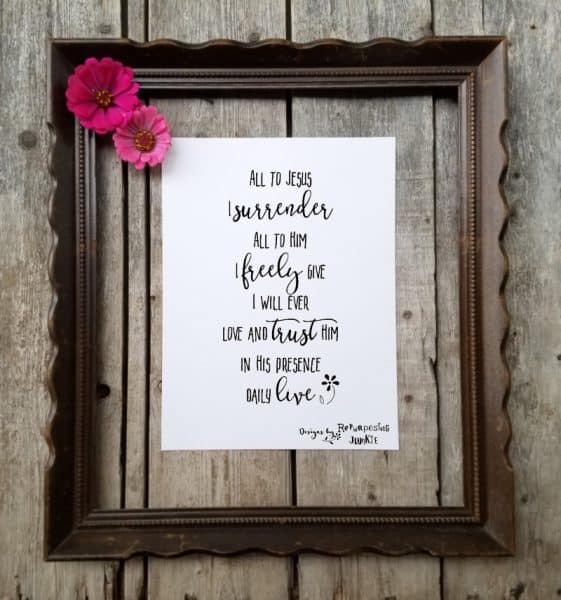 All to Jesus
I surrender
All to Him
I freely give
I will ever
love and trust Him
in His presence
daily live
Designs by Repurposing
Junkie